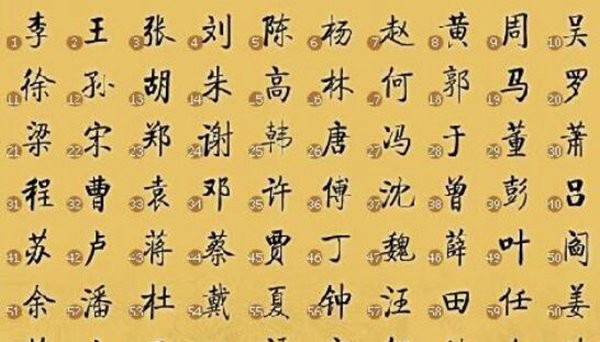 1 李 2 王 3 张 4 刘 5 陈 6 杨 7 赵 8 黄 9 周 10 吴
11 徐 12 孙 13 胡 14 朱 15 高 16 林 17 何 18 郭 19 马 20 罗
21 梁 22 宋 23 郑 24 谢 25 韩 26 唐 27 冯 28 于 29 董 30 萧
31 程 32 曹 33 袁 34 邓 35 许 36 傅 37 沈 38 曾 39 彭 40 吕
41 苏 42 卢 43 蒋 44 蔡 45 贾 46 丁 47 魏 48 薛 49 叶 50 阎
51 余 52 潘 53 杜 54 戴 55 夏 56 钟 57 汪 58 田 59 任 60 姜